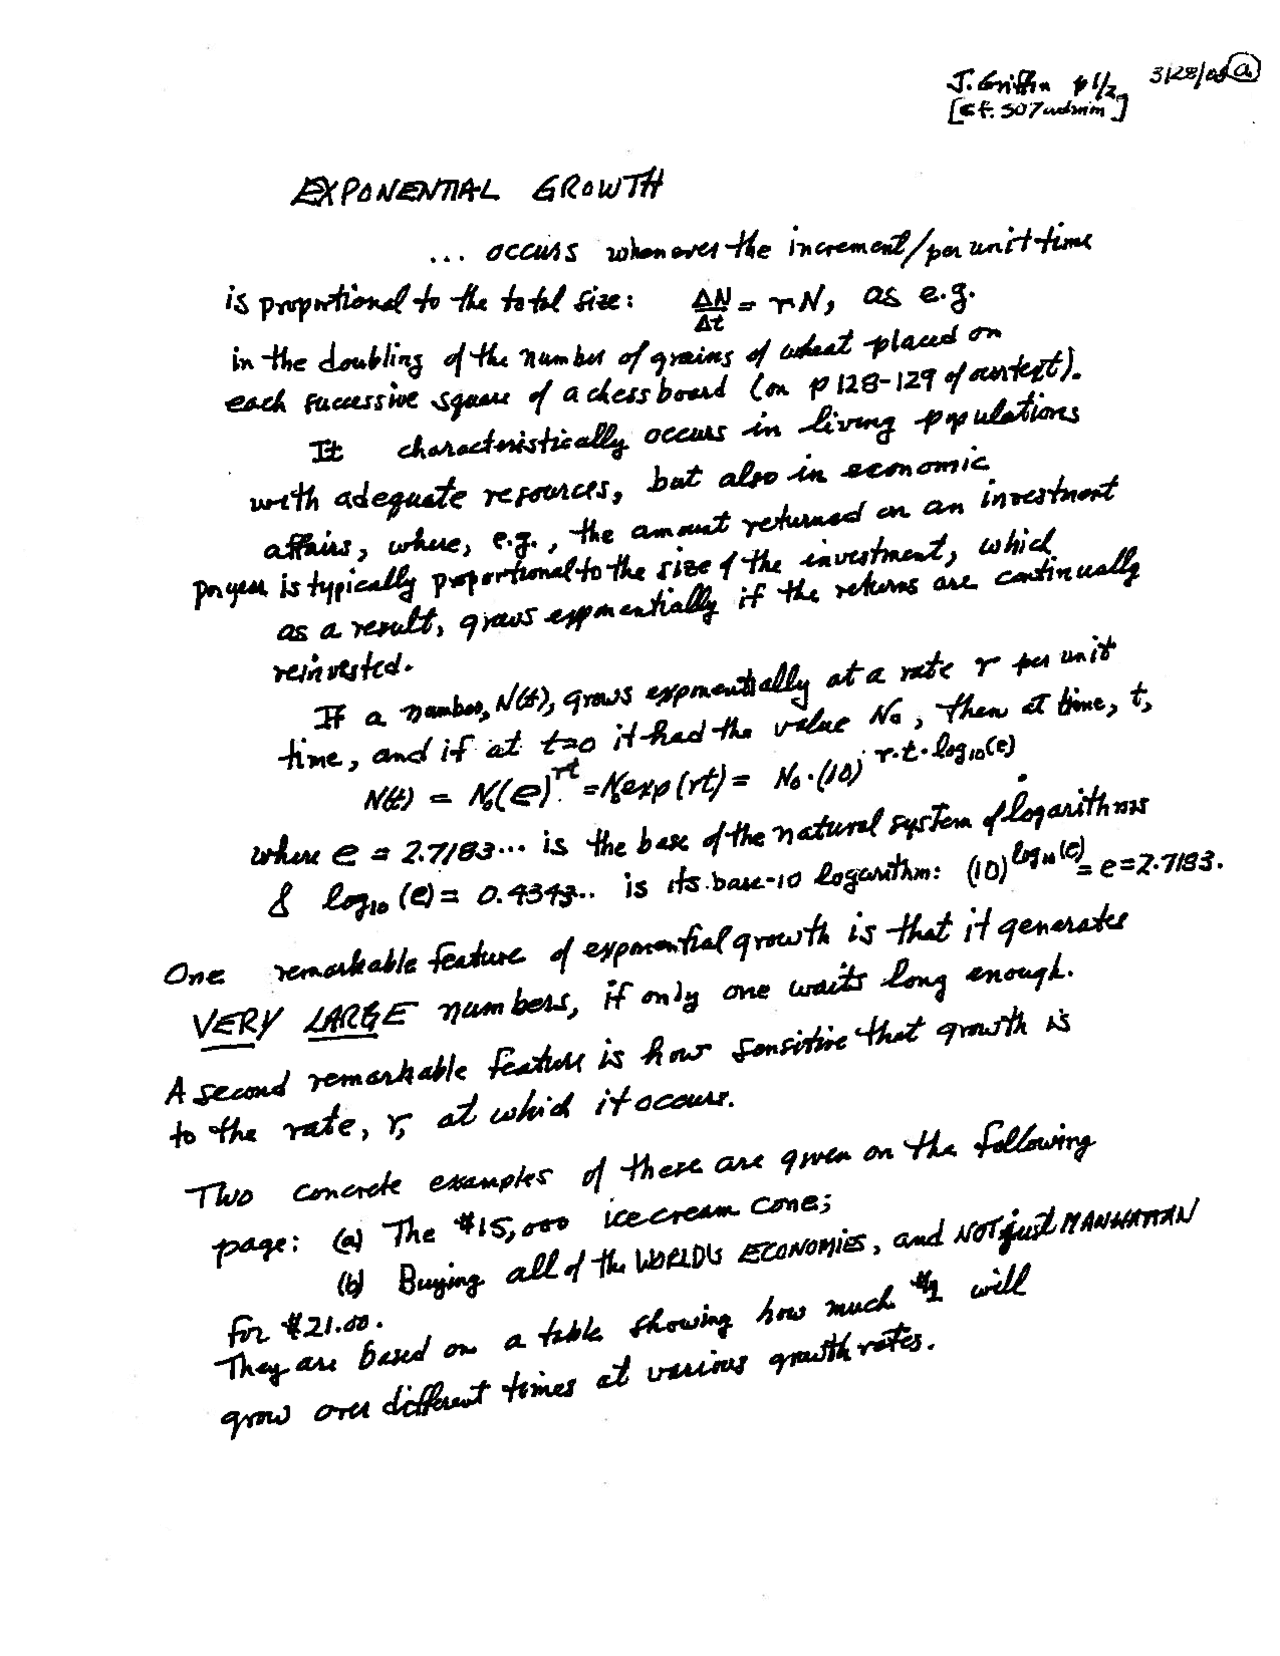 J. Griffin p 1/2 3/28/05 (a)
[cf. 507admin]
EXPONENTIAL GROWTH
... occurs whenever the increment/per unit time
is proportional to the total size: ΔN/Δt = rN, as e.g.
in the doubling of the number of grains of wheat placed on
each successive square of a chess board (on p 128-129 of our text).
It characteristically occurs in living populations
with adequate resources, but also in economic
affairs, where, e.g., the amount returned on an investment
per year is typically proportional to the size of the investment, which
as a result, grows exponentially if the returns are continually
reinvested.
If a number, N(t), grows exponentially at a rate r per unit
time, and if at t=0 it had the value N₀, then at time, t,
N(t) = N₀(e)^rt = N₀exp(rt) = N₀·(10)^r·t·log₁₀(e)
where e = 2.7183... is the base of the natural system of logarithms
& log₁₀(e) = 0.4343.. is its base-10 logarithm: (10)^log₁₀(e) = e = 2.7183.
One remarkable feature of exponential growth is that it generates
VERY LARGE numbers, if only one waits long enough.
A second remarkable feature is how sensitive that growth is
to the rate, r, at which it occurs.
Two concrete examples of these are given on the following
page: (a) The $15,000 ice cream cone;
(b) Buying all of the WORLD'S ECONOMIES, and NOT just MANHATTAN
for $21.00.
They are based on a table showing how much $1 will
grow over different times at various growth rates.